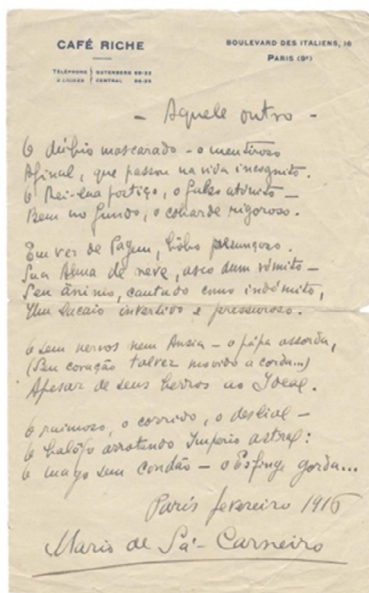 CAFÉ RICHE
BOULEVARD DES ITALIENS, 16
PARIS (9e)
TÉLÉPHONE
2 LIGNES
GUTENBERG
CENTRAL
— Aquele outro —
O dúbio mascarado — o mentiroso
Afinal, que passou na vida incognito.
O Rei-lua postiço, o falso atónito —
Bem no fundo, o cobarde rigoroso.
Em vez de Pagem, bôbo presunçoso.
Sua Alma de neve, asco dum vómito —
Seu ânimo, cantado como indómito,
Um lacaio invertido e pressuroso.
O sem nervos nem Ansia — o pápa assorda,
(Seu coração talvez movido a corda...)
Apesar de seus berros ao Ideal.
O raimoso, o corrido, o desleal —
O balofo arrotando Imperio astral:
O mago sem condão — o Esfinge gorda...
Paris fevereiro 1916
Mario de Sá-Carneiro